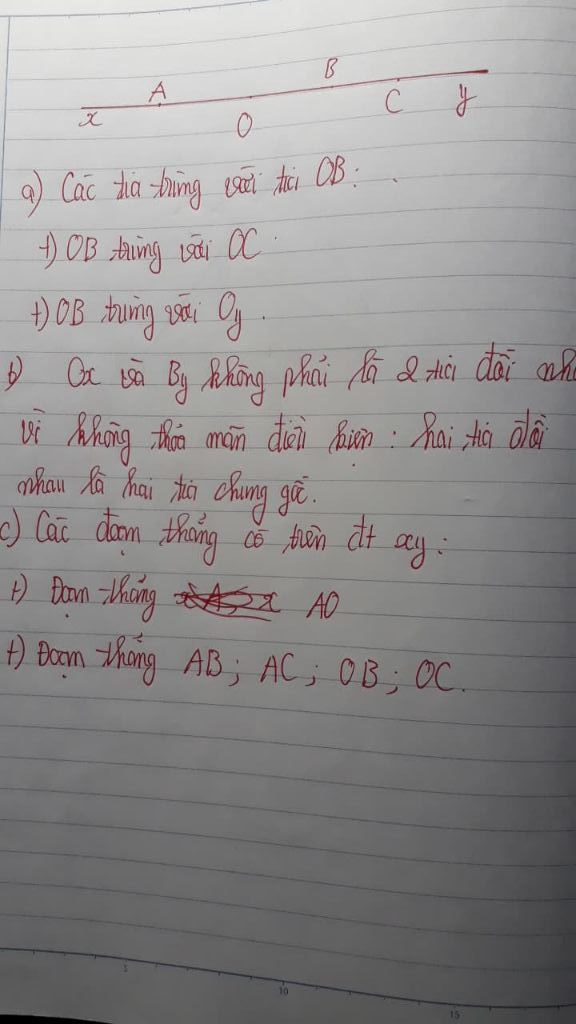 A
B
x
O
C
y
a) Các tia trùng với tia OB:
+) OB trùng với OC
+) OB trùng với Oy.
b) Ox và By không phải là 2 tia đối nha
vì không thỏa mãn điều kiện : hai tia đối
nhau là hai tia chung gốc.
c) Các đoạn thẳng có trên đt xy:
+) Đoạn thẳng AO
+) Đoạn thẳng AB; AC; OB; OC.
5
10
15